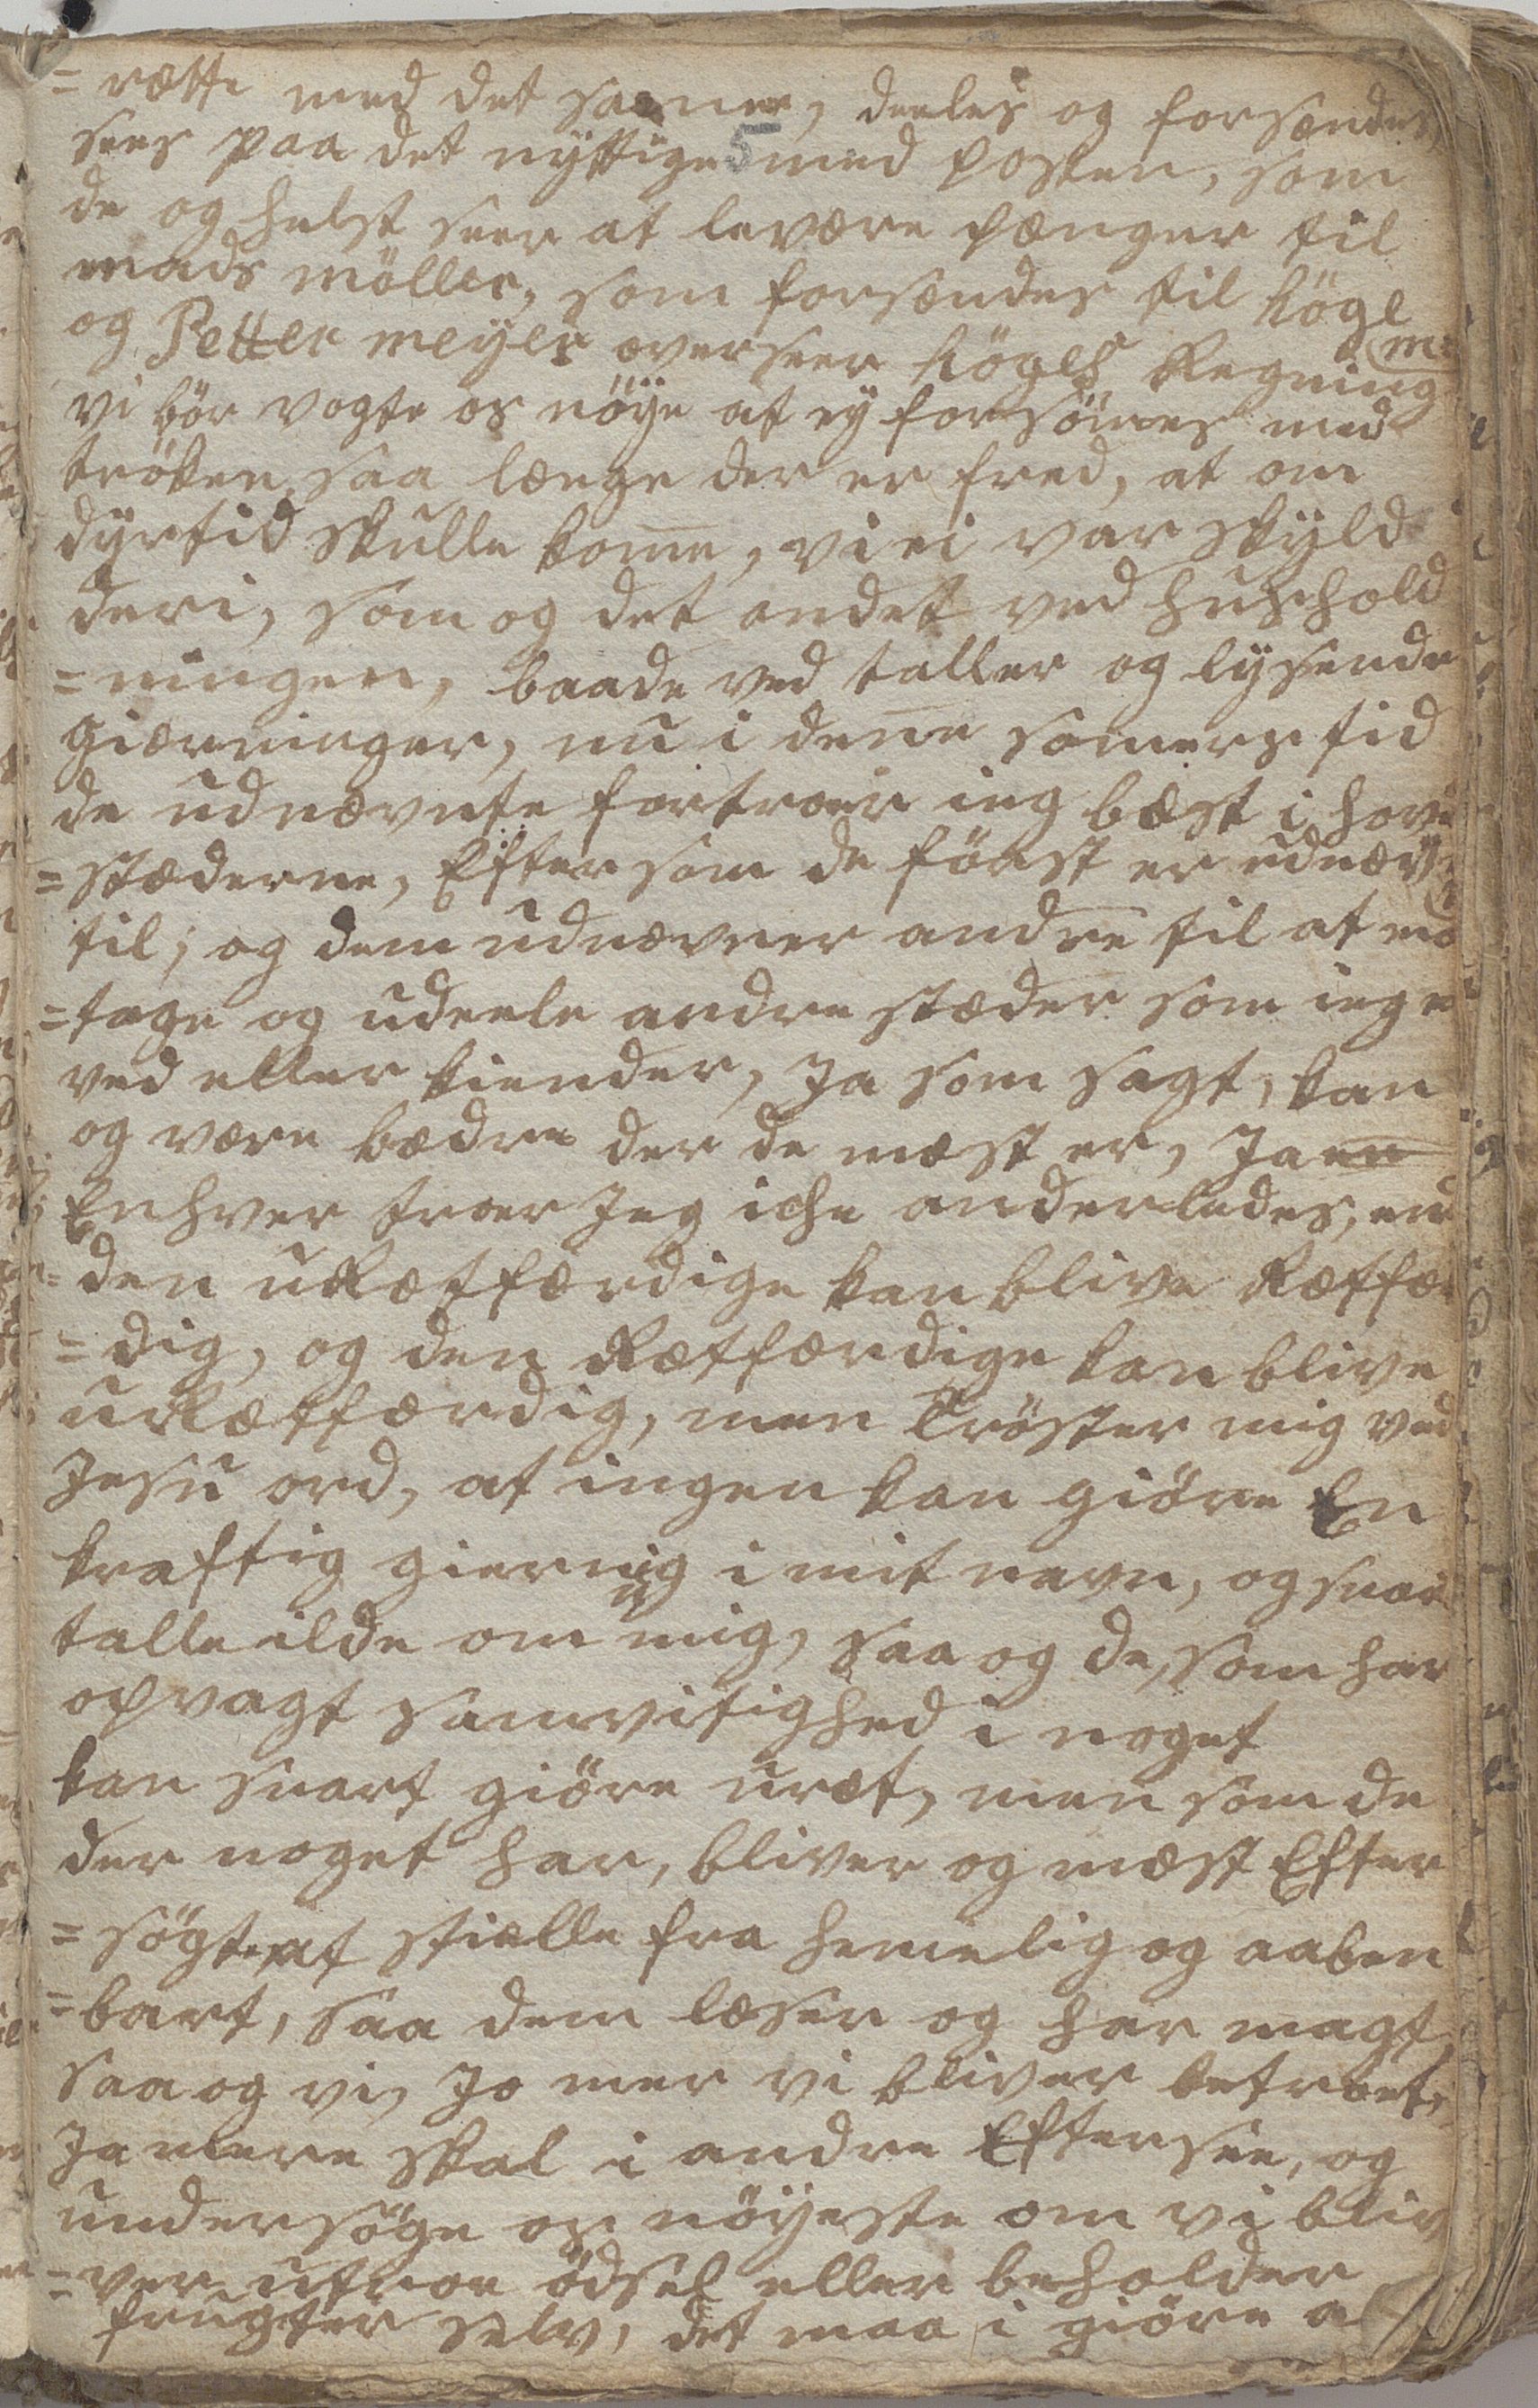 = rette med det samme, deeles og forsændes,
sees paa det nyttige 5 med posten, som
de og helst seer at levære pænger til
mads möller, som forsændes til Högl
og Petter meyer overseer Högls Regning
vi bör vogte os nöye at ey forsömes med
tröken saa længe der er fred, at om
dyrtid skulle kom̄e, vi ei var skyld
deri, som og det andet ved huushold
= ningen, baade ved taller og lysende
gierninger, nu i den̄e somers tid
de udnævnte fortroer ieg bæst i hove
= stæderne, Efter som de först er udnæv
til, og dem udnævner andre til at mo
= tage og udeele andre stæder som ieg e
ved eller kiender, Ja som sagt, kan
og være bædre der de mæst er, Ja en
Enhver troer Jeg iche anderledes, end
den uRetfærdige kan blive Retfær
= dig, og den Retfærdige kan blive
uRetfærdig, men Tröster mig ved
Jesu ord, at ingen kan giöre En
kraftig giernig i mit navn, og snar
talle ilde om mig, saa og de, som har
opvagt samvitighed i noget
kan snart giöre uret, men som de
der noget har, bliver og mæst Efter
= sögt at stiælle fra hemelig og aaben
= bart, saa dem læser og har magt,
saa og vi, Jo mer vi bliver betroet,
Ja mere skal i andre Eftersee, og
undersöge os nöyeste om vi bliv
= ver utroe ödsel eller beholder
frugter selv, det maa i giöre a